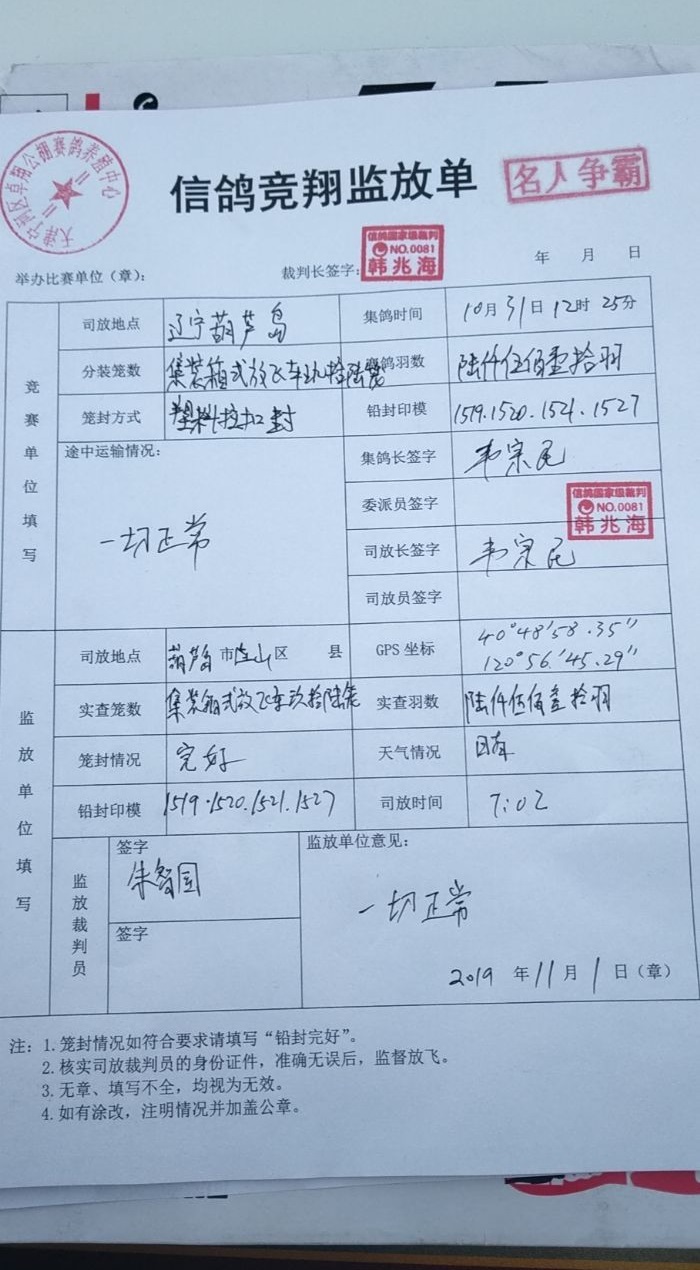 天津宁河区卓翔公棚赛鸽养殖中心
信鸽竞翔监放单
名人争霸
举办比赛单位（章）：
裁判长签字：
信鸽国家级裁判
NO.0081
韩兆海
年 月 日
竞赛单位填写
司放地点 辽宁葫芦岛 集鸽时间 10月31日12时25分
分装笼数 集装箱式放飞车玖拾陆笼 赛鸽羽数 陆仟伍佰壹拾羽
笼封方式 塑料拉扣封 铅封印模 1519.1520.1521.1527
途中运输情况： 集鸽长签字 韦宗民
一切正常
委派员签字
信鸽国家级裁判
NO.0081
韩兆海
司放长签字 韦宗民
司放员签字
监放单位填写
司放地点 葫芦岛市连山区 县 GPS 坐标 40°48′58.35″
120°56.′45.29″
实查笼数 集装箱式放飞车玖拾陆笼 实查羽数 陆仟伍佰壹拾羽
笼封情况 完好 天气情况
铅封印模 1519.1520.1521.1527 司放时间 7:02
监放裁判员
签字
朱智国
签字
监放单位意见：
一切正常
2019 年 11 月 1 日（章）
注：1.笼封情况如符合要求请填写“铅封完好”。
2.核实司放裁判员的身份证件，准确无误后，监督放飞。
3.无章、填写不全，均视为无效。
4.如有涂改，注明情况并加盖公章。